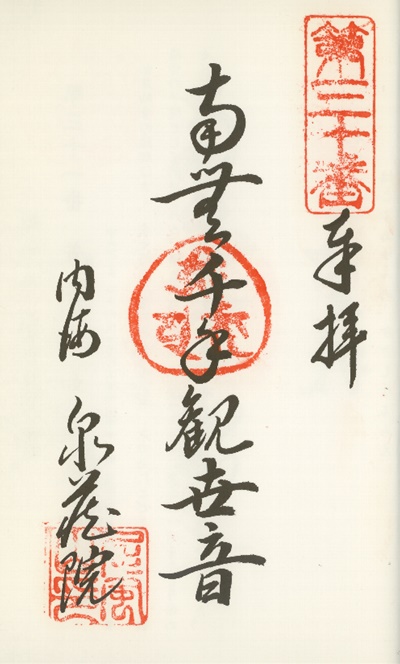 第三十番
奉拝
南無千手観世音
内海 泉蔵院